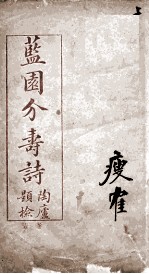 上
藍園分壽詩
陶廬
題檢
瘦寉